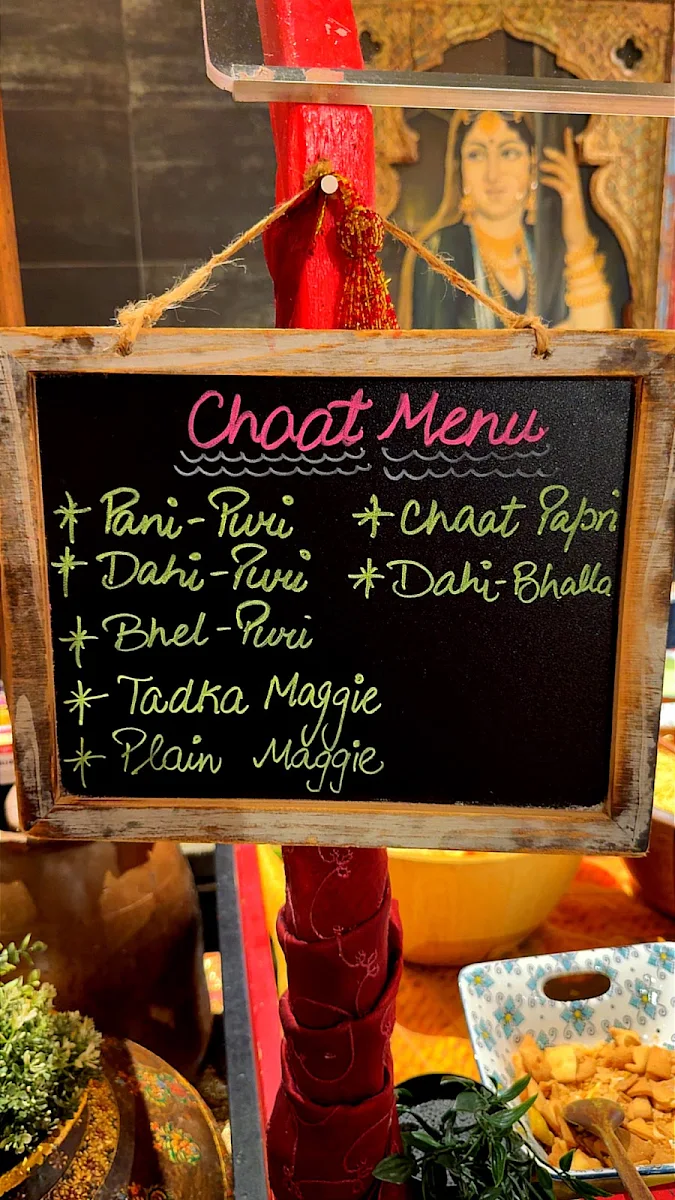 Chaat Menu
* Pani-Puri
* Dahi-Puri
* Bhel-Puri
* Tadka Maggie
* Plain Maggie
* Chaat Papri
* Dahi-Bhalla